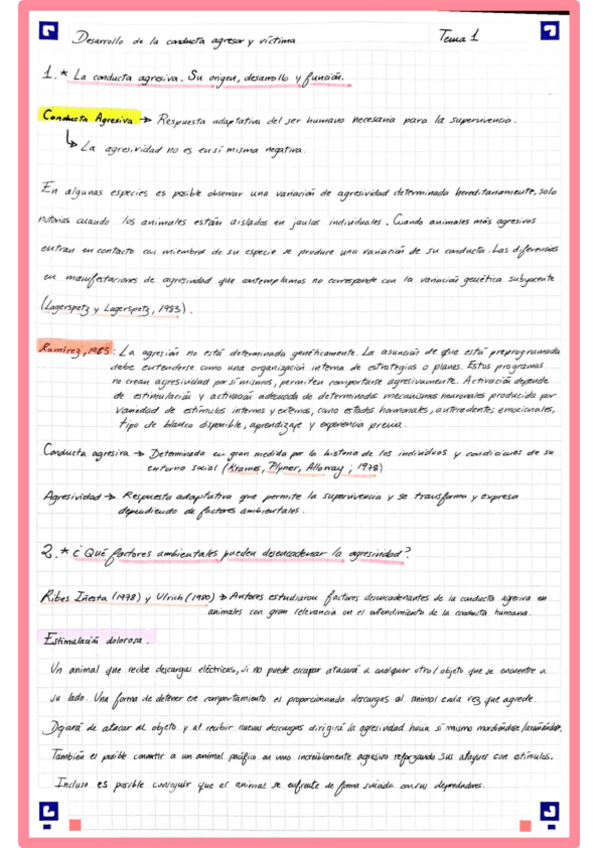 Desarrollo de la conducta agresor y víctima
Tema 1
1.* La conducta agresiva. Su origen, desarrollo y función.
Conducta Agresiva → Respuesta adaptativa del ser humano necesaria para la supervivencia.
↳ La agresividad no es en sí misma negativa.
En algunas especies es posible observar una variación de agresividad determinada hereditariamente, solo
notorias cuando los animales están aislados en jaulas individuales. Cuando animales más agresivos
entran en contacto con miembros de su especie se produce una variación de su conducta. Las diferencias
en manifestaciones de agresividad que contemplamos no corresponde con la variación genética subyacente
(Lagerspetz y Lagerspetz, 1983).
Ramirez, 1985: La agresión no está determinada genéticamente. La asunción de que está preprogramada
debe entenderse como una organización interna de estrategias o planes. Estos programas
no crean agresividad por sí mismos, permiten comportarse agresivamente. Activación depende
de estimulación y activación adecuada de determinados mecanismos neuronales producida por
variedad de estímulos internos y externos, como estados hormonales, antecedentes emocionales,
tipo de blanco disponible, aprendizaje y experiencia previa.
Conducta agresiva → Determinada en gran medida por la historia de los individuos y condiciones de su
entorno social (Krames, Plymer, Alloway; 1978)
Agresividad → Respuesta adaptativa que permite la supervivencia y se transforma y expresa
dependiendo de factores ambientales.
2.* ¿Qué factores ambientales pueden desencadenar la agresividad?
Ribes Iñesta (1978) y Ulrich (1980) → Autores estudiaron factores desencadenantes de la conducta agresiva en
animales con gran relevancia en el entendimiento de la conducta humana.
Estimulación dolorosa.
Un animal que recibe descargas eléctricas, si no puede escapar atacará a cualquier otro/objeto que se encuentre a
su lado. Una forma de detener ese comportamiento es proporcionando descargas al animal cada vez que agrede.
Dejará de atacar al objeto y al recibir nuevas descargas dirigirá la agresividad hacia sí mismo mordiéndose/arañándose.
También es posible convertir a un animal pacífico en uno increíblemente agresivo reforzando sus ataques con estímulos.
Incluso es posible conseguir que el animal se enfrente de forma suicida con sus depredadores.